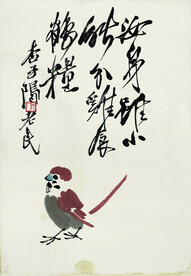 汝身雖小
能分雞食
鶴糧
杏子隖老民